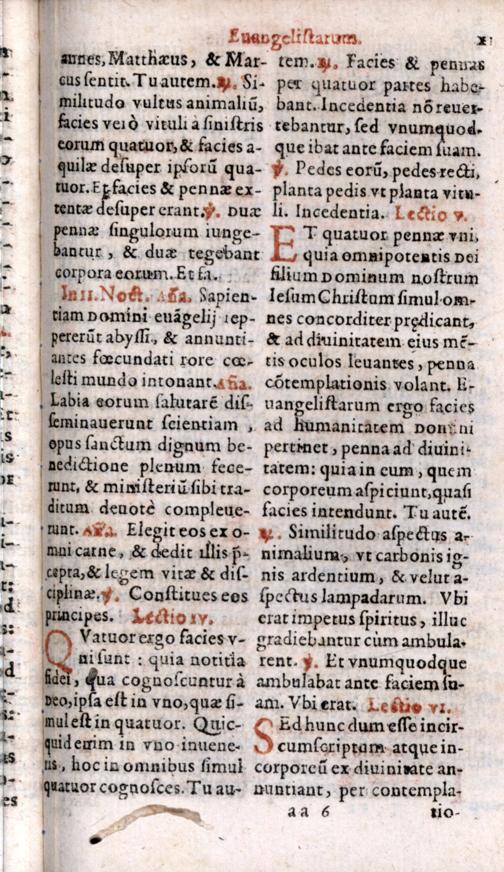 Euangelistarum.
annes, Matthæus, & Mar-
cus sentit. Tu autem. ℟. Si-
militudo vultus animaliū,
facies verò vituli à sinistris
eorum quatuor, & facies a-
quilæ desuper ipsorū qua-
tuor. Et facies & pennæ ex-
tentæ desuper erant. ℣. Duæ
pennæ singulorum iunge-
bantur, & duæ tegebant
corpora eorum. Et fa.
In II. Noct. Aña. Sapien-
tiam Domini euāgelij rep-
pererūt abyssi, & annunti-
antes fœcundati rore cœ-
lesti mundo intonant. Aña.
Labia eorum salutarē dis-
seminauerunt scientiam,
opus sanctum dignum be-
nedictione plenum fece-
runt, & ministeriū sibi tra-
ditum deuotè compleue-
runt. Aña. Elegit eos ex o-
mni carne, & dedit illis p̄-
cepta, & legem vitæ & dis-
ciplinæ. ℣. Constitues eos
principes. Lectio IV.
QVatuor ergo facies v-
ni sunt: quia notitia
fidei, qua cognoscuntur à
Deo, ipsa est in vno, quæ si-
mul est in quatuor. Quic-
quid enim in vno inuene-
ris, hoc in omnibus simul
quatuor cognosces. Tu au-
tem. ℟. Facies & pennas
per quatuor partes habe-
bant. Incedentia nō reuer-
tebantur, sed vnumquod-
que ibat ante faciem suam.
℣. Pedes eorū, pedes recti,
planta pedis vt planta vitu-
li. Incedentia. Lectio V.
ET quatuor pennæ vni,
quia omnipotentis Dei
filium Dominum nostrum
Iesum Christum simul om-
nes concorditer prędicant,
& ad diuinitatem eius mē-
tis oculos leuantes, penna
cōtemplationis volant. E-
uangelistarum ergo facies
ad humanitatem Domini
pertinet, penna ad diuini-
tatem: quia in eum, quem
corporeum aspiciunt, quasi
facies intendunt. Tu autē.
℟. Similitudo aspectus a-
nimalium, vt carbonis ig-
nis ardentium, & velut a-
spectus lampadarum. Vbi
erat impetus spiritus, illuc
gradiebantur cùm ambula-
rent. ℣. Et vnumquodque
ambulabat ante faciem su-
am. Vbi erat. Lectio VI.
SEd hunc dum esse incir-
cumscriptum atque in-
corporeū ex diuinitate an-
nuntiant, per contempla-
aa 6 tio-